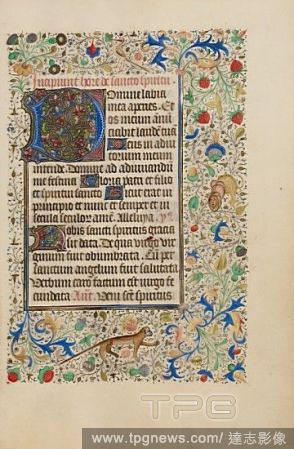 Incipiunt hore de sancto spiritu
Domine labia
mea aperies. Et
os meum annū
ciabit laudē tuā
Deus in adiu
torium meum
intende. Domine ad adiuuandū
me festina Gloria patri et filio
et spiritui sancto Sicut erat in
principio et nunc et semper et in
secula seculorū amē. Alleluya.
Nobis sancti spiritus gracia
sit data. De qua uirgo uir
ginum fuit obumbrata. Cū per
sanctum angelum fuit salutata
Verbum caro factum est uirgo fe
cundata Añt. Veni sēē spiritus
TPG
www.tpgnews.com / 達志影像